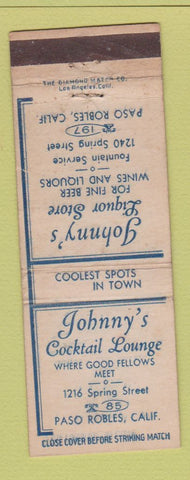 THE DIAMOND MATCH CO.
Los Angeles, Calif.
Johnny's
Liquor Store
FOR FINE BEER
WINES AND LIQUORS
Fountain Service
1240 Spring Street
197
PASO ROBLES, CALIF.
COOLEST SPOTS
IN TOWN
Johnny's
Cocktail Lounge
WHERE GOOD FELLOWS
MEET
1216 Spring Street
85
PASO ROBLES, CALIF.
CLOSE COVER BEFORE STRIKING MATCH